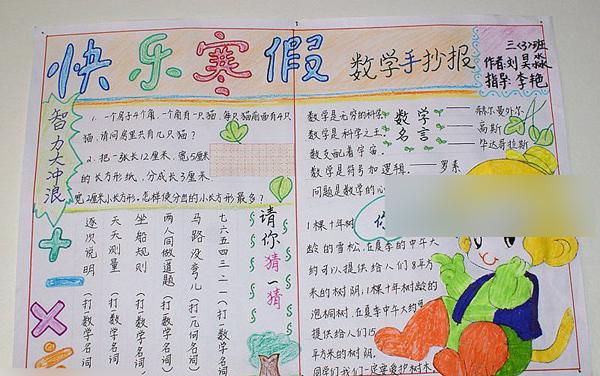 快乐寒假
数学手抄报
三<3>班
作者:刘昊淼
指导:李艳
智力大冲浪
1. 一个房子4个角,一个角有一只猫,每只猫前面有4只
猫,请问房里共有几只猫?
2. 把一张长12厘米,宽5厘米
的长方形纸,分成长3厘米,
宽2厘米小长方形,怎样使分出的小长方形最多?
数学名言
数学是无穷的科学 —— 赫尔曼外尔
数学是科学之王 —— 高斯
数支配着宇宙 —— 毕达哥拉斯
数学是符号加逻辑 —— 罗素
问题是数学的心
请你猜一猜
七六五四三二一(打一数学名词
马路没弯儿(打一几何名词
两人同做道题(打一数学名词
坐船规则(打一数学名词
天天测量(打一数学名词
逐次说明(打一数学名词
你
1棵十年树
龄的雪松,在夏季的中午大
约可以提供给人们8平方
米的树阴;1棵十年树龄的
泡桐树,在夏季中午大约
提供给人们15
平方米的树阴。
同学们,我们一定要爱护树木